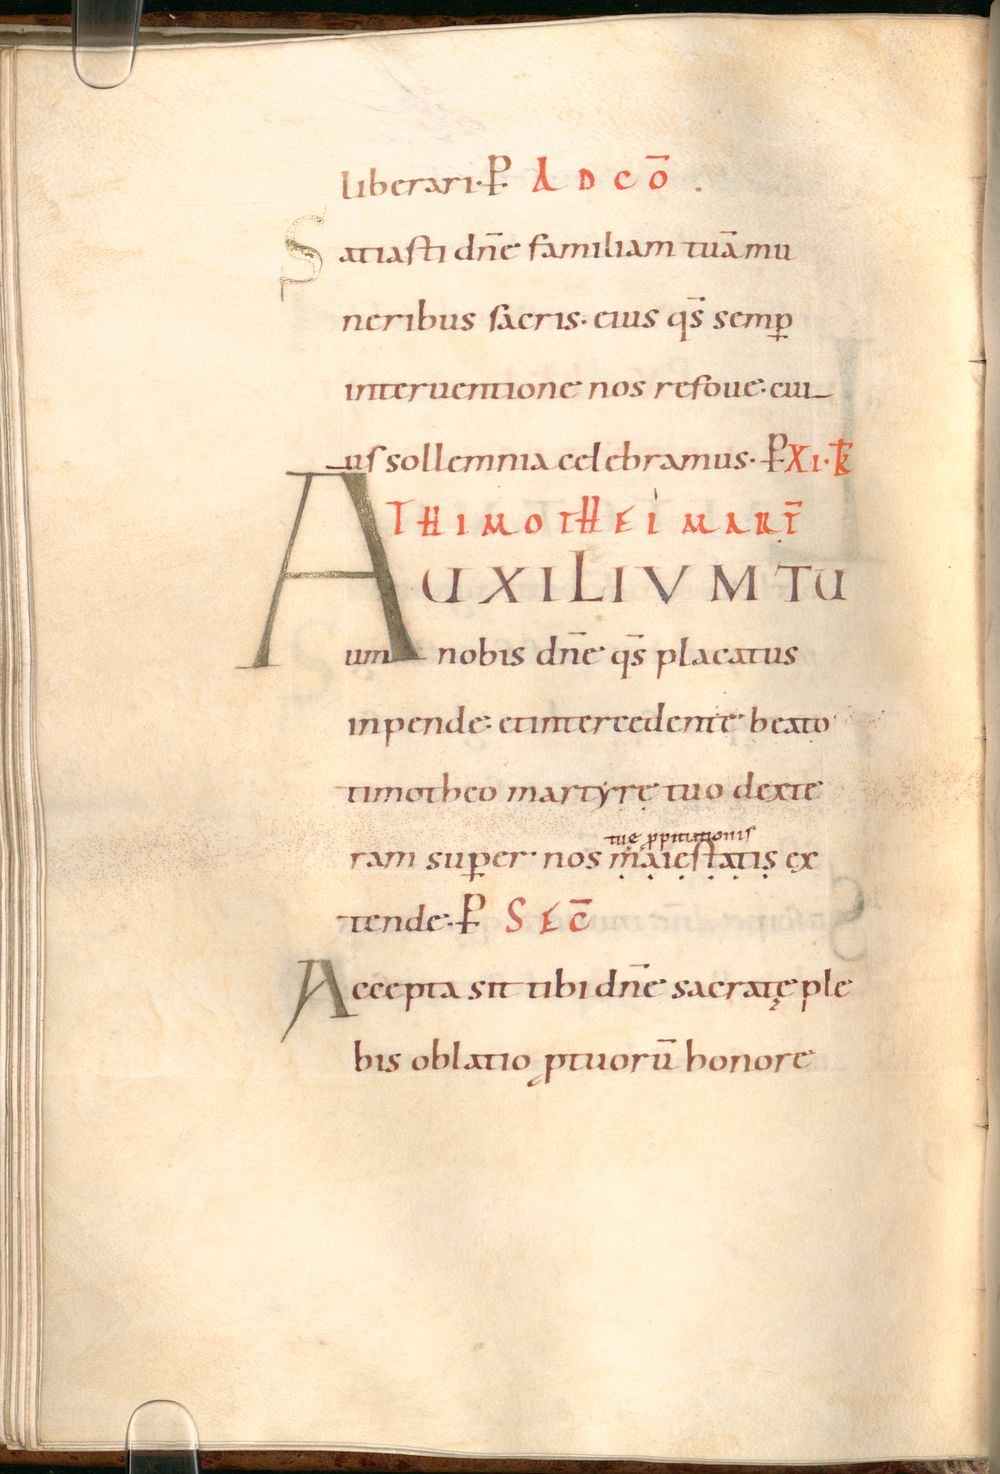 liberari· P AD CŌ .
Satiasti dn̄e familiam tuā mu
neribus sacris· eius qs̄ semꝑ
interuentione nos refoue· cui
us sollemnia celebramus· P XI· K̄
THIMOTHEI MART̄
AUXILIUM TU
um nobis dn̄e qs̄ placatus
inpende· et intercedente beato
timotheo martyrę tuo dexte
tuę ꝓpitiationis
ram suꝑer nos ṃạiẹṣṭạṭịṣ ex
tende· P SEC̄
Accepta sit tibi dn̄e sacratę ple
bis oblatio ꝓ tuorū honore